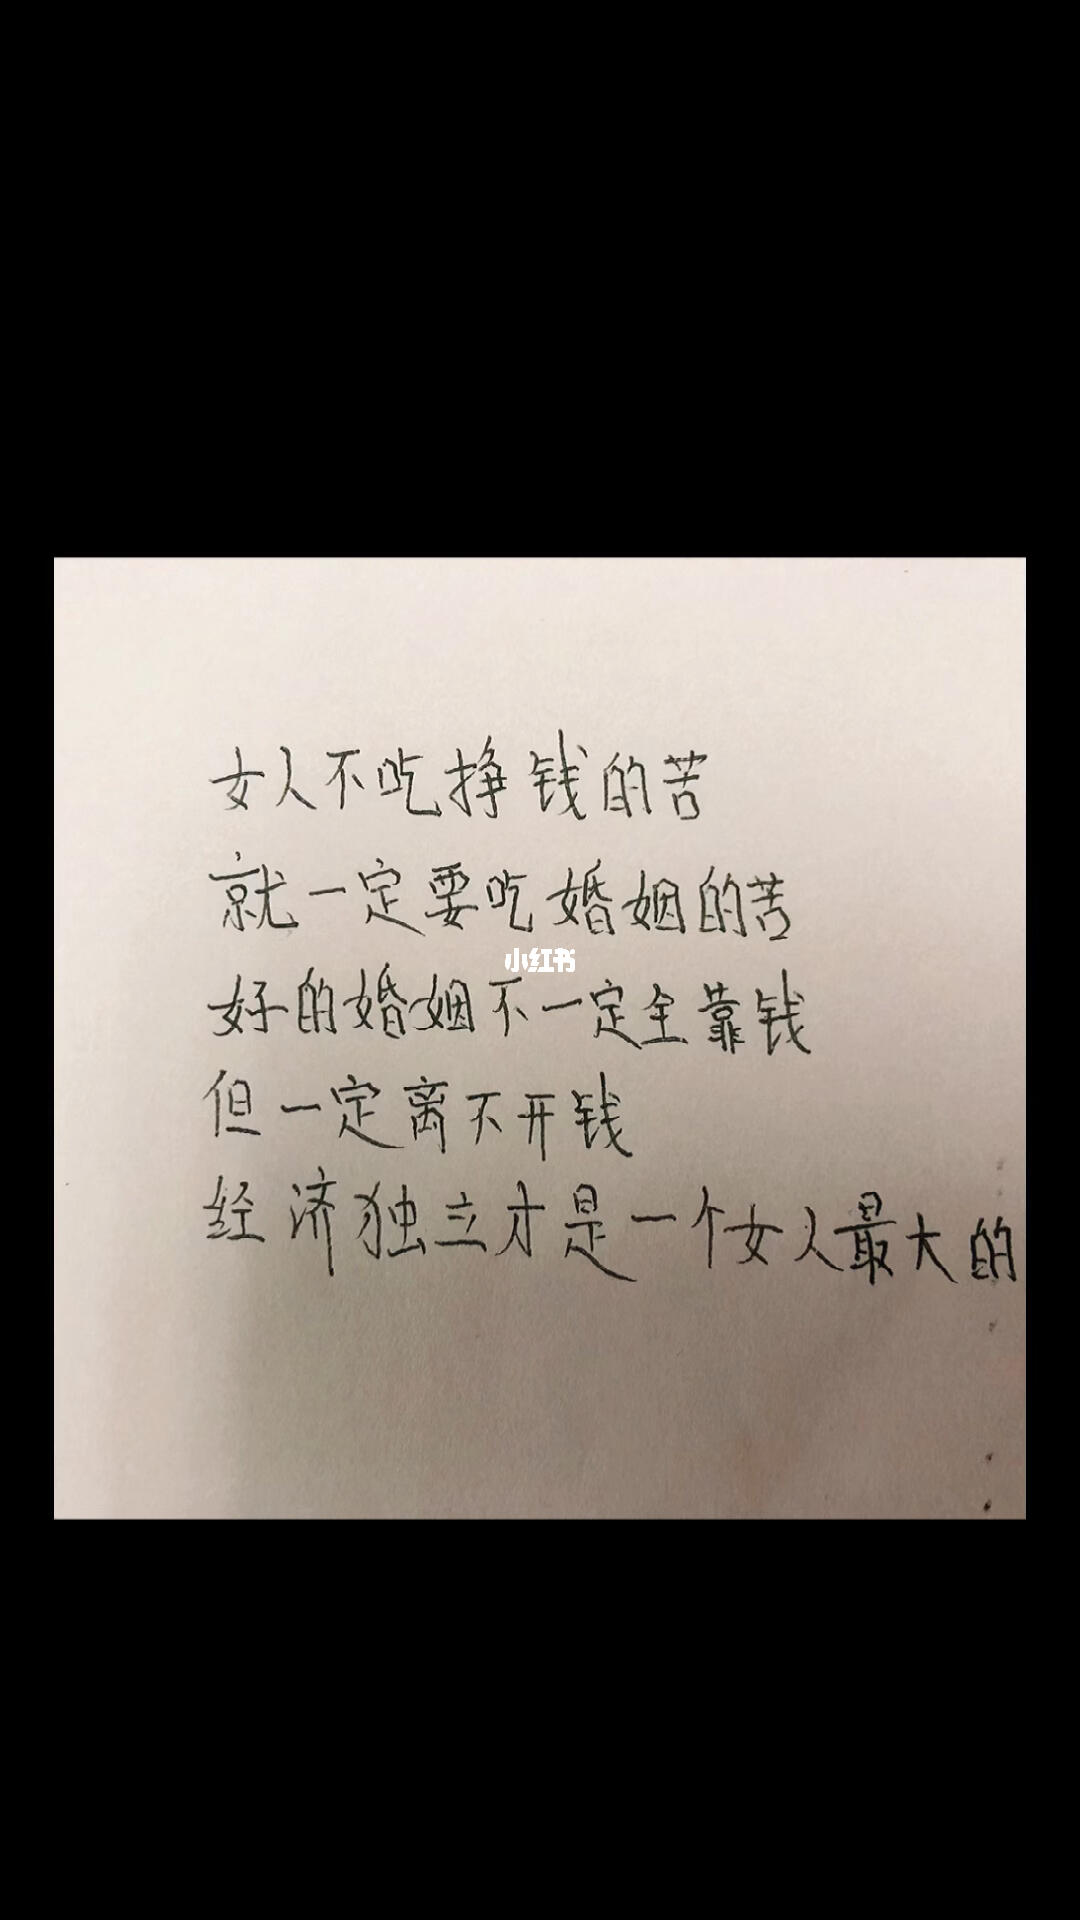 女人不吃挣钱的苦
就一定要吃婚姻的苦
小红书
好的婚姻不一定全靠钱
但一定离不开钱
经济独立才是一个女人最大的